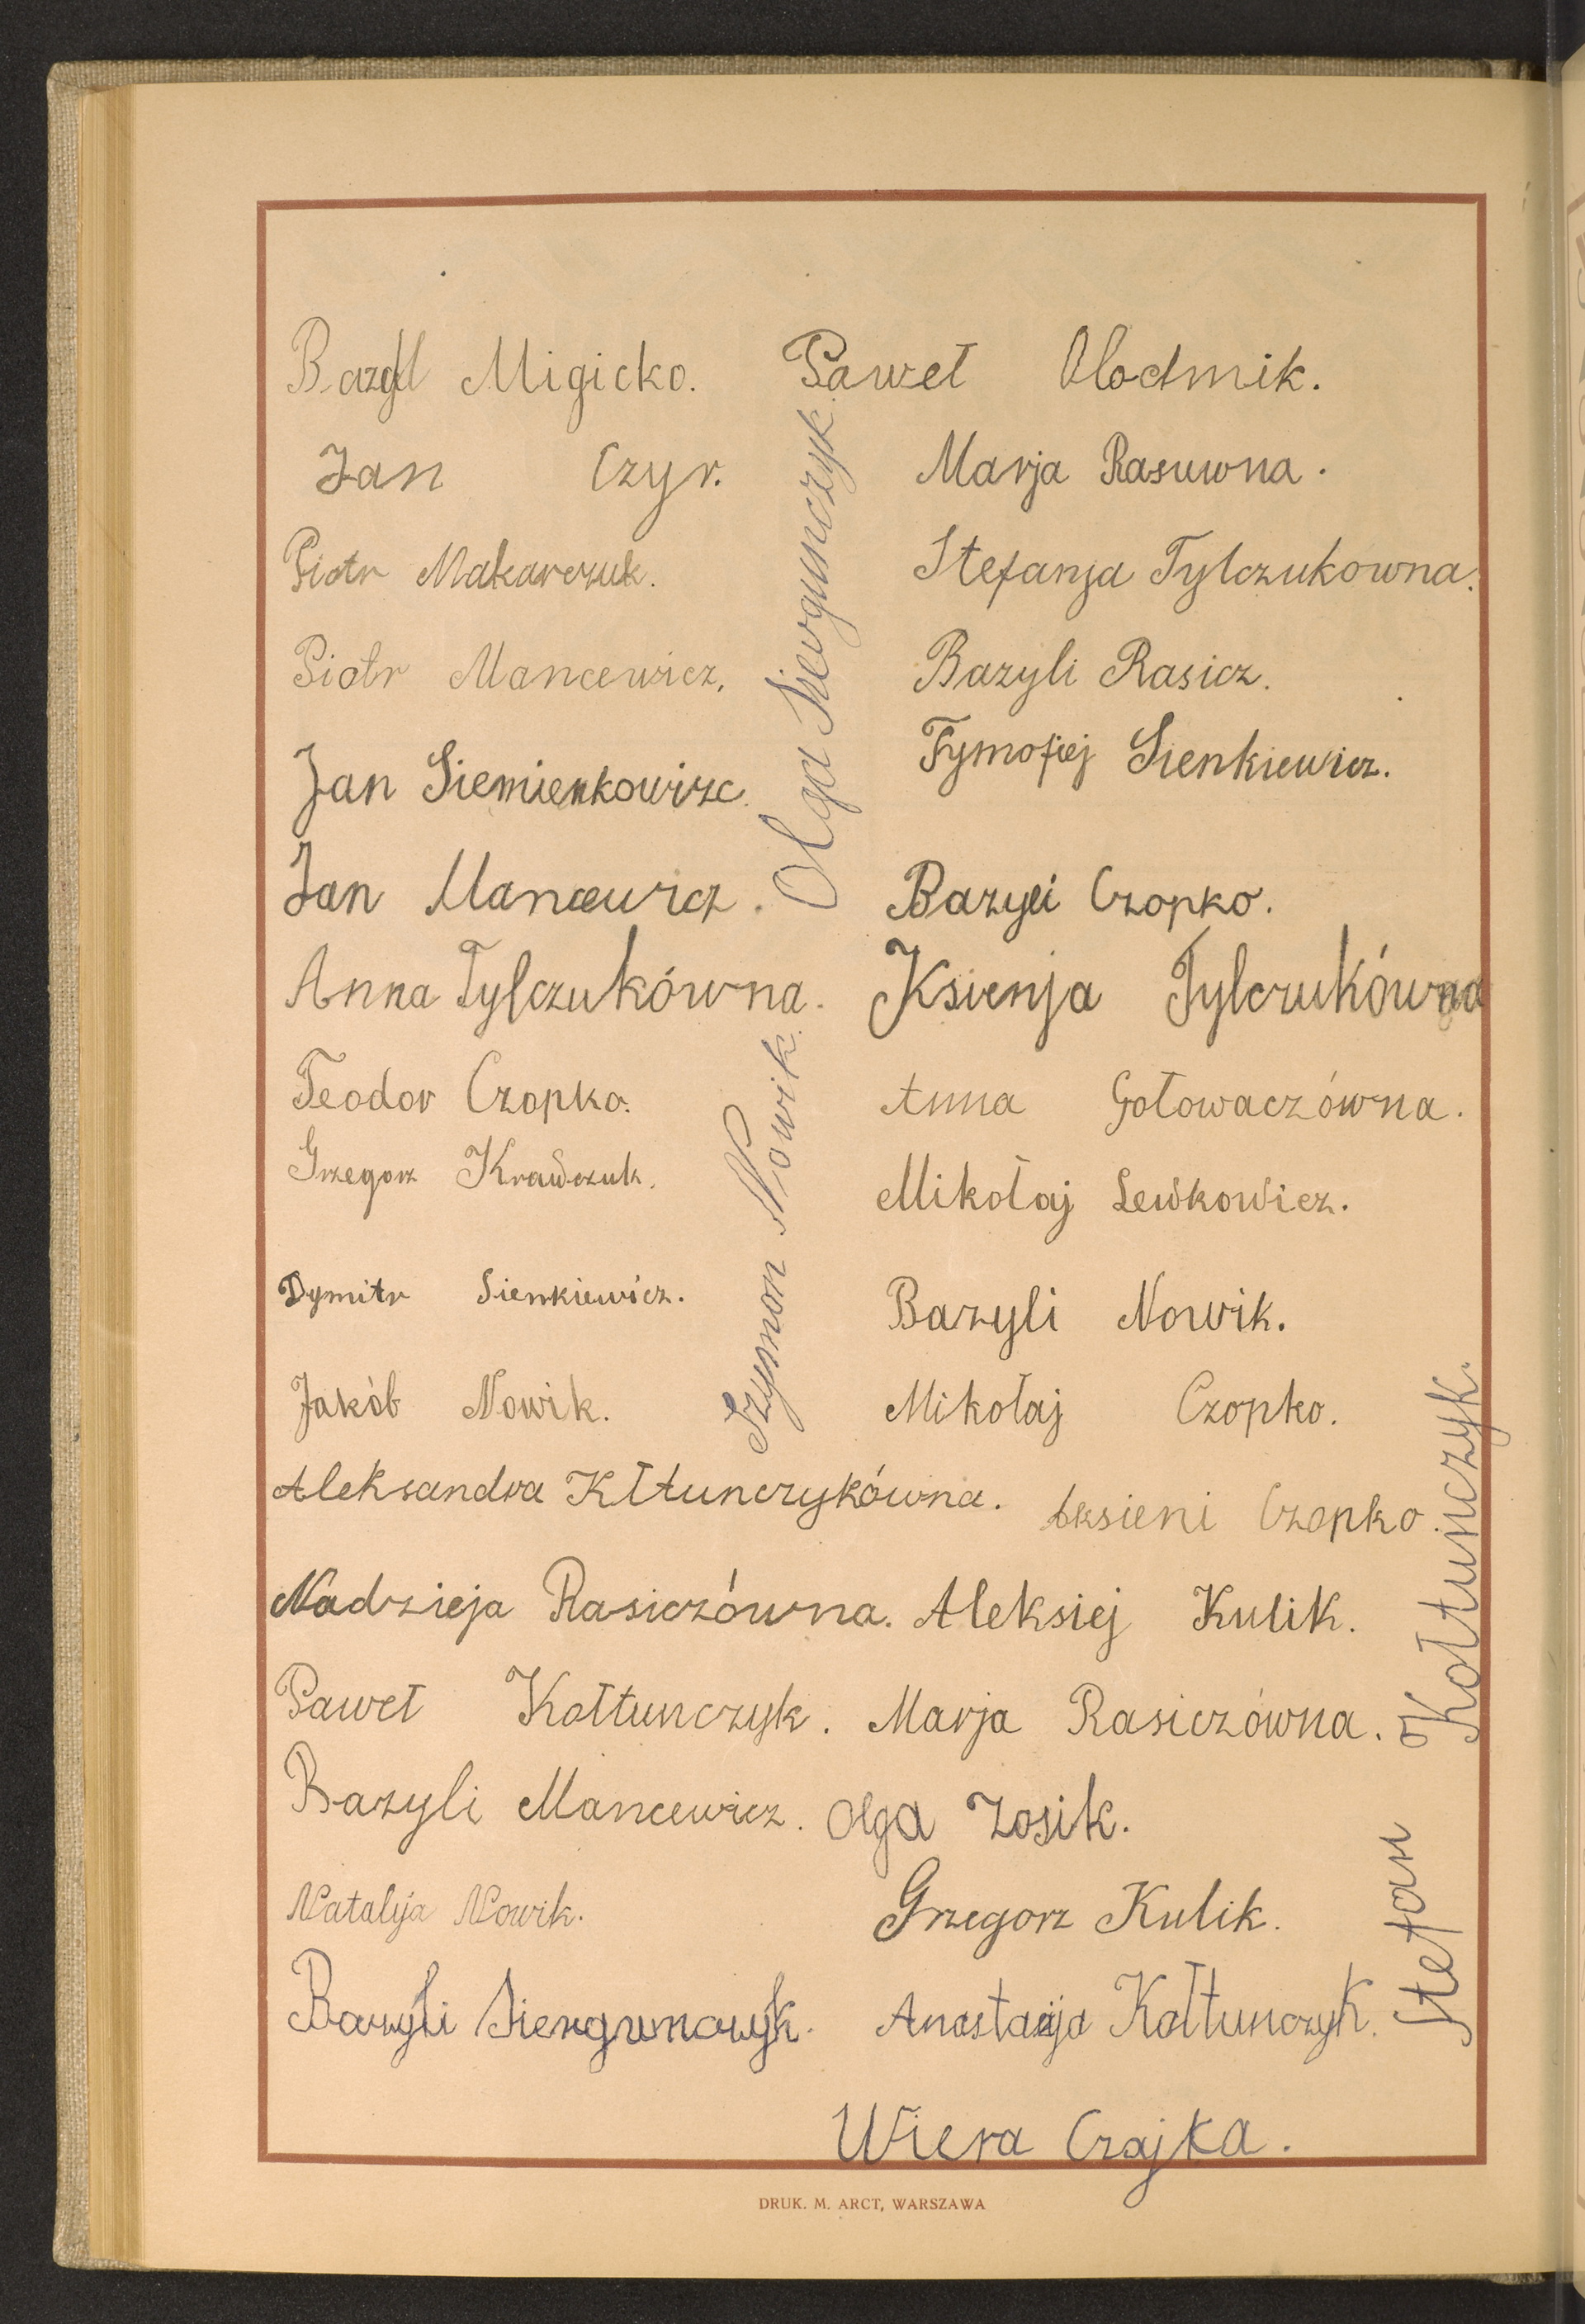 Bazyl Migicko. Paweł Olodmik.
Jan Czyr. Marja Rasuwna.
Piotr Makarczuk. Stefanja Tylczukowna.
Piotr Mancewicz. Bazyli Rasicz.
Jan Siemienkowizc. Tymofiej Sienkiewicz.
Jan Mancewicz. Bazyli Czopko.
Olga Siergunczyk.
Anna Tylczukówna. Ksienja Tylczukówna
Teodor Czopko. Anna Gołowaczówna.
Grzegorz Krawczuk. Mikołaj Lewkowicz.
Dymitr Sienkiewicz. Bazyli Nowik.
Jakób Nowik. Mikołaj Czopko.
Szymon Nowik.
Aleksandra Kłtunczykówna. Aksieni Czopko.
Nadzieja Rasiczówna. Aleksiej Kulik.
Paweł Kołtunczyk. Marja Rasiczówna.
Bazyli Mancewicz. Olga Zosik.
Natalija Nowik. Grzegorz Kulik.
Bazyli Siergunczyk. Anastazja Kołtunczyk.
Stefan Kołtunczyk.
Wiera Czajka.
DRUK. M. ARCT, WARSZAWA